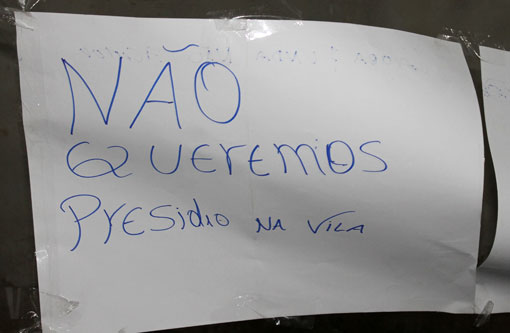 NÃO
QUEREMOS
PRESIDIO NA VILA